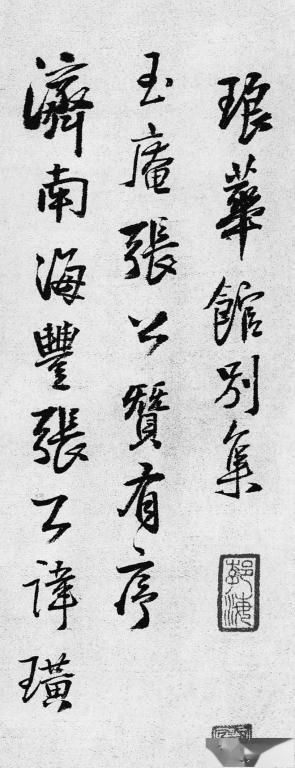 琅華館別集
玉庵張公贊有序
濟南海豐張公諱璜